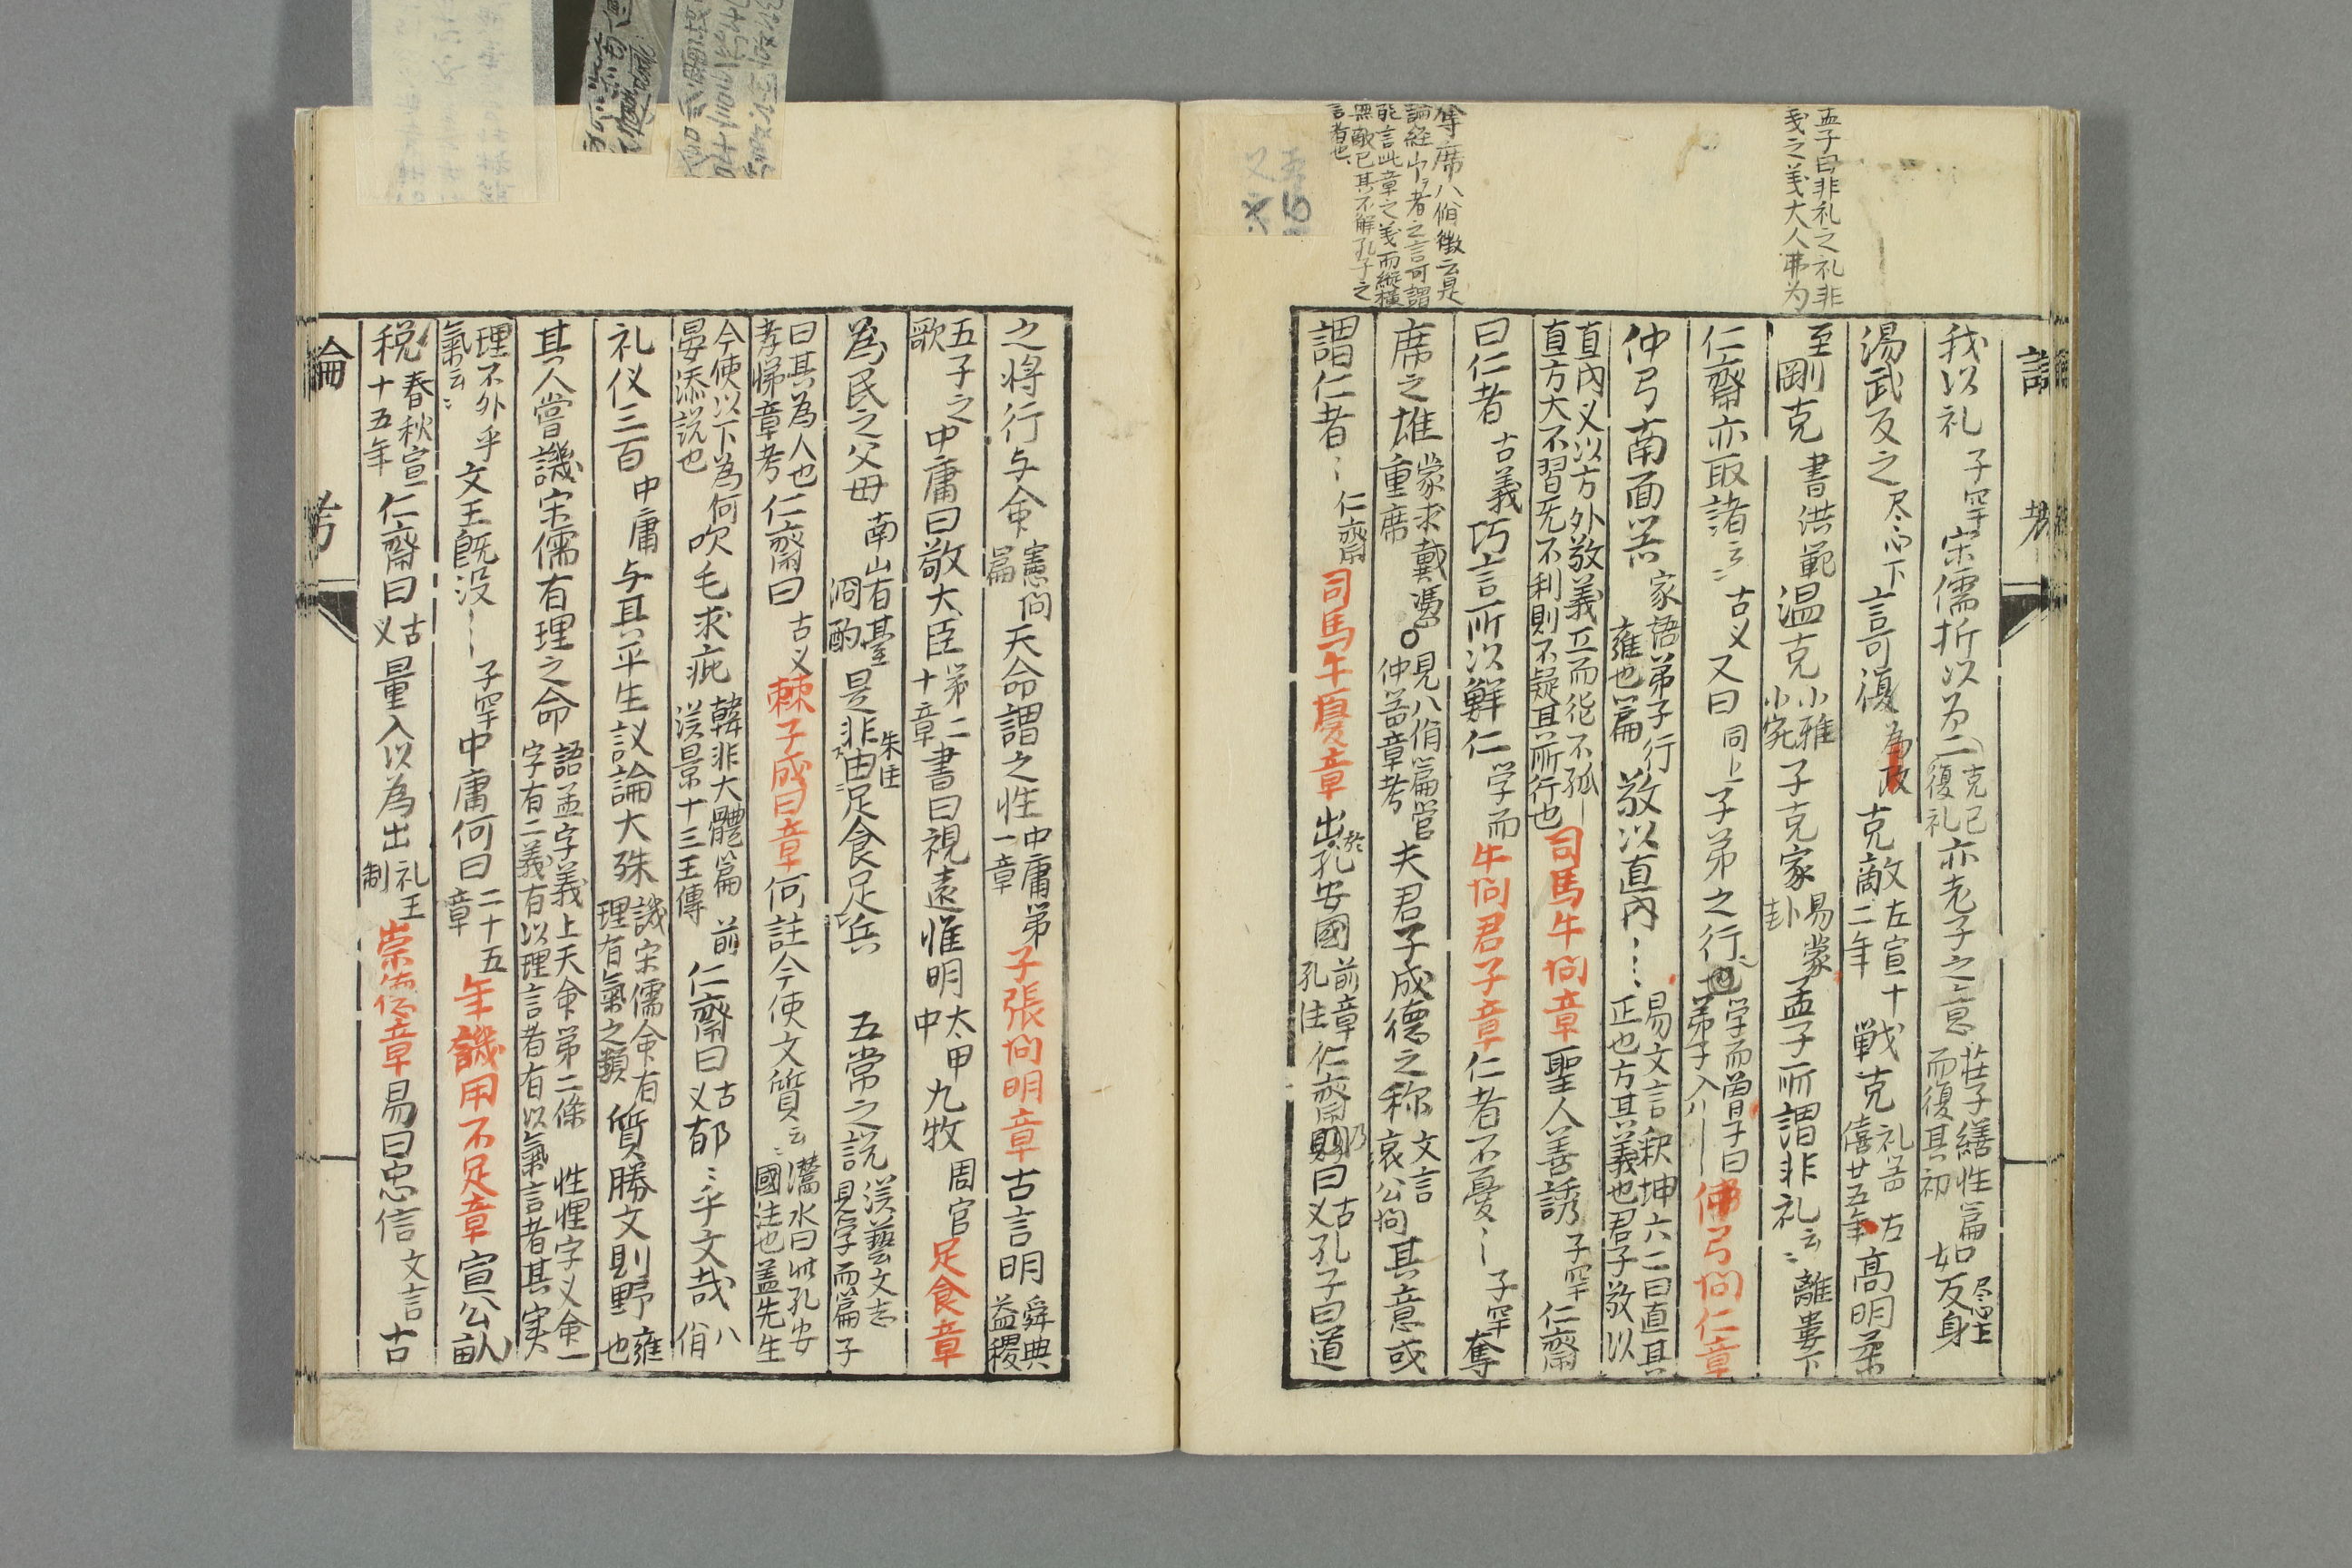 孟子曰非礼之礼非
義之義大人弗为
奪席八佾徵云是
論経
者之言可謂
能言此章之義而縦横
無敵已其不解孔子之
言者也
我以礼 子罕 宋儒折以为二 克己復礼 亦老子之意 荘子繕性篇而復其初 如 尽心上 反身
湯武反之 尽心下 言可復 为政 克敵 左宣十二年 戦克 礼器 左僖廿五年 高明柔
至剛克 書洪範 温克 小雅小宛 子克家 易蒙卦 孟子所謂非礼云〻 離婁下
仁齋亦取諸云〻 古义 又曰 同上 子弟之行也 学而曽子曰弟子入 仲弓問仁章
仲弓南面 家語弟子行雍也篇 敬以直内〻〻 易文言釈坤六二曰直其正也方其義也君子敬以
直内义以方外敬義立而 不孤直方大不習无不利則不疑其所行也 司馬牛問章 聖人善誘 子罕 仁齋
曰仁者 古義 巧言所以鮮仁 学而 牛問君子章 仁者不憂〻 子罕 奪
席之雄 蒙求戴憑重席 見八佾篇管仲器章考 夫君子成德之称 文言哀公問 其意或
謂仁者〻 仁齋 司馬牛憂章 出於孔安國 前章孔注 仁齋乃曰 古义 孔子曰道
論 考
之将行与命 憲問篇 天命謂之性 中庸第一章 子張問明章 古言明 舜典益稷
五子之歌 中庸曰敬大臣 第二十章 書曰視遠惟明 太甲中 九牧 周官 足食章
為民之父母 南山有臺泂酌 是非由 朱注 足食足兵 五常之説 漢藝文志見学而篇子
曰其為人也孝悌章考 仁齋曰 古义 棘子成曰章 何註今使文質云〻 灊水曰此孔安國注也蓋先生
今使以下為何晏添説也 吹毛求疵 韓非大體篇 前漢景十三王傳 仁齋曰 古义 郁〻乎文哉 八佾
礼仪三百 中庸 与其平生议論大殊 譏宋儒命有理有氣之類 質勝文則野 雍也
其人嘗譏宋儒有理之命 語孟字義上天命第二條 性理字义命一字有二義有以理言者有以氣言者其実
理不外乎氣云〻 文王既没 子罕 中庸何曰 二十五章 年譏用不足章 宣公畝
税 春秋宣十五年 仁齋曰 古义 量入以為出 礼王制 崇德章 易曰忠信 文言 古
論 考